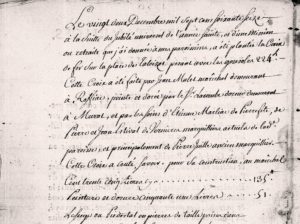 Le vingt deux Decembre mil sept cent soixante seize
a la suitte du jubilé universel de l'année sainte, et d'une mission
ou retraite que j'ai donnée à ma paroisse, a été plantée la Croix
de fer sur la place de l'eglise pesant avec les gonds 224.
Cette Croix a été faite par Jean Malet marechal demeurant
à ; peinte et dorée par le Sr Lacombe doreur demeurant
à Murat, et par les soins d'Etienne Martin de Pierrefite, de
Pierre et Jean marguilliers actuels de lad.
paroisse, et principalement de Pierre Juille ancien marguillier.
Cette Croix a couté savoir, pour la construction, au marechal
Cent trente cinq livres 135
Peinture et dorure cinquante une livres 51
en pierre de taille